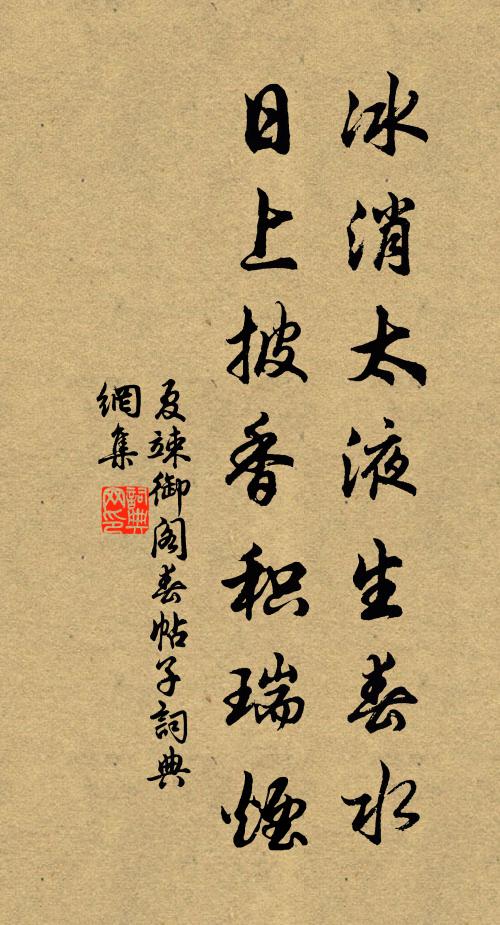 冰消太液生春水
日上披香积瑞煙
夏竦御阁春帖子詞典
網集
詞典
网印